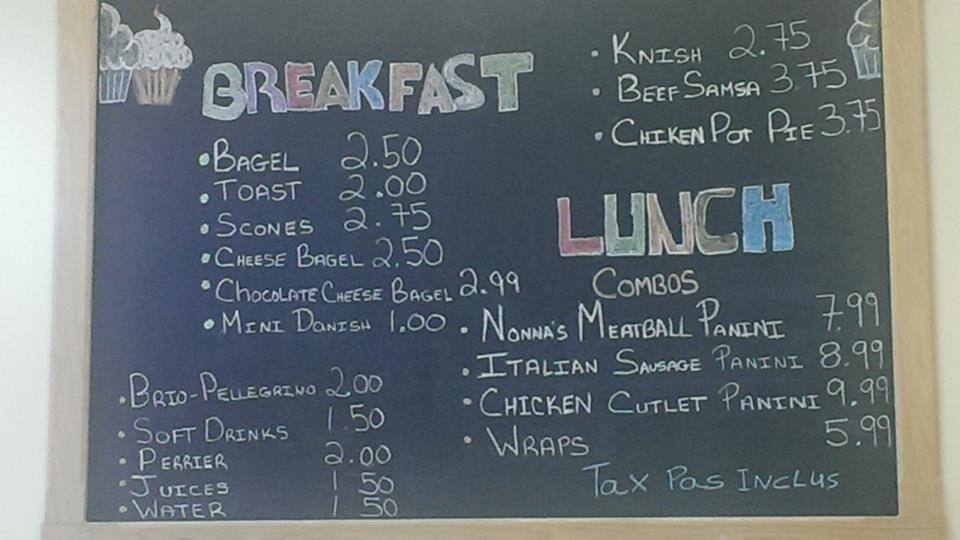 BREAKFAST
• BAGEL 2.50
• TOAST 2.00
• SCONES 2.75
• CHEESE BAGEL 2.50
• CHOCOLATE CHEESE BAGEL 2.99
• MINI DANISH 1.00
• BRIO-PELLEGRINO 2.00
• SOFT DRINKS 1.50
• PERRIER 2.00
• JUICES 1 50
• WATER 1 50
• KNISH 2.75
• BEEF SAMSA 3.75
• CHIKEN POT PIE 3.75
LUNCH
COMBOS
• NONNA'S MEATBALL PANINI 7.99
• ITALIAN SAUSAGE PANINI 8.99
• CHICKEN CUTLET PANINI 9.99
• WRAPS 5.99
TAX PAS INCLUS